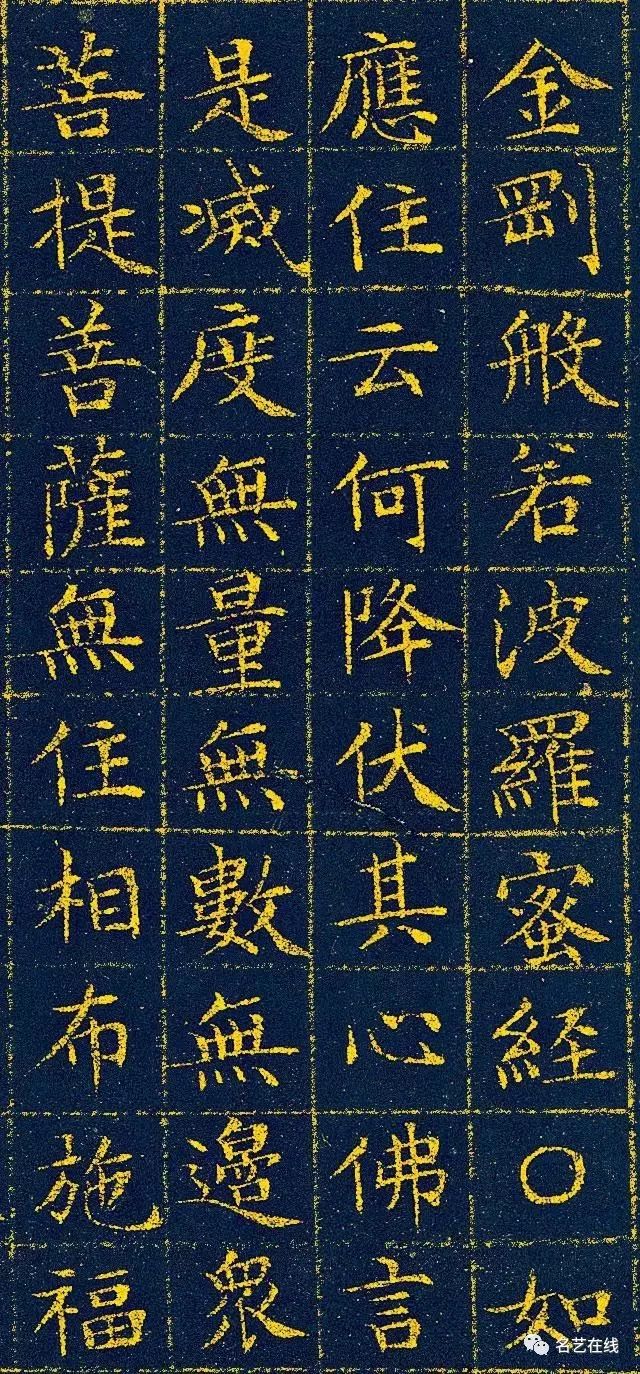 金剛般若波羅蜜經〇如
應住云何降伏其心佛言
是滅度無量無數無邊眾
菩提菩薩無住相布施福
名艺在线